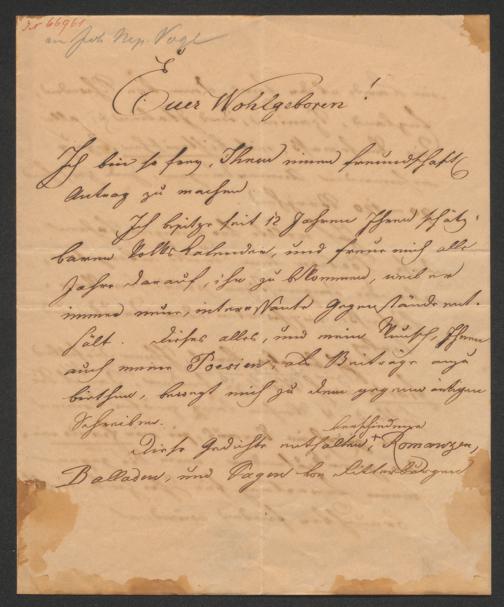 66961
an Joh. Nep. Vogl
Euer Wohlgeboren!
Ich bin so frey, Ihnen einen freundschaftl
Antrag zu machen
Ich besitze seit 12 Jahren Ihren schätz-
baren Volkskalender, und freue mich alle
Jahre darauf, ihn zu bekommen, weil er
immer neue, interessante Gegenstände ent-
hält. Dieses alles, und mein Wunsch, Ihnen
auch meine Poesien, als Beiträge anzu
biethen, bewegt mich zu dem gegenwärtigen
Schreiben.
verschiedene
Diese Gedichte enthalten + Romanzen,
Balladen, und Sagen von Ritterburgen